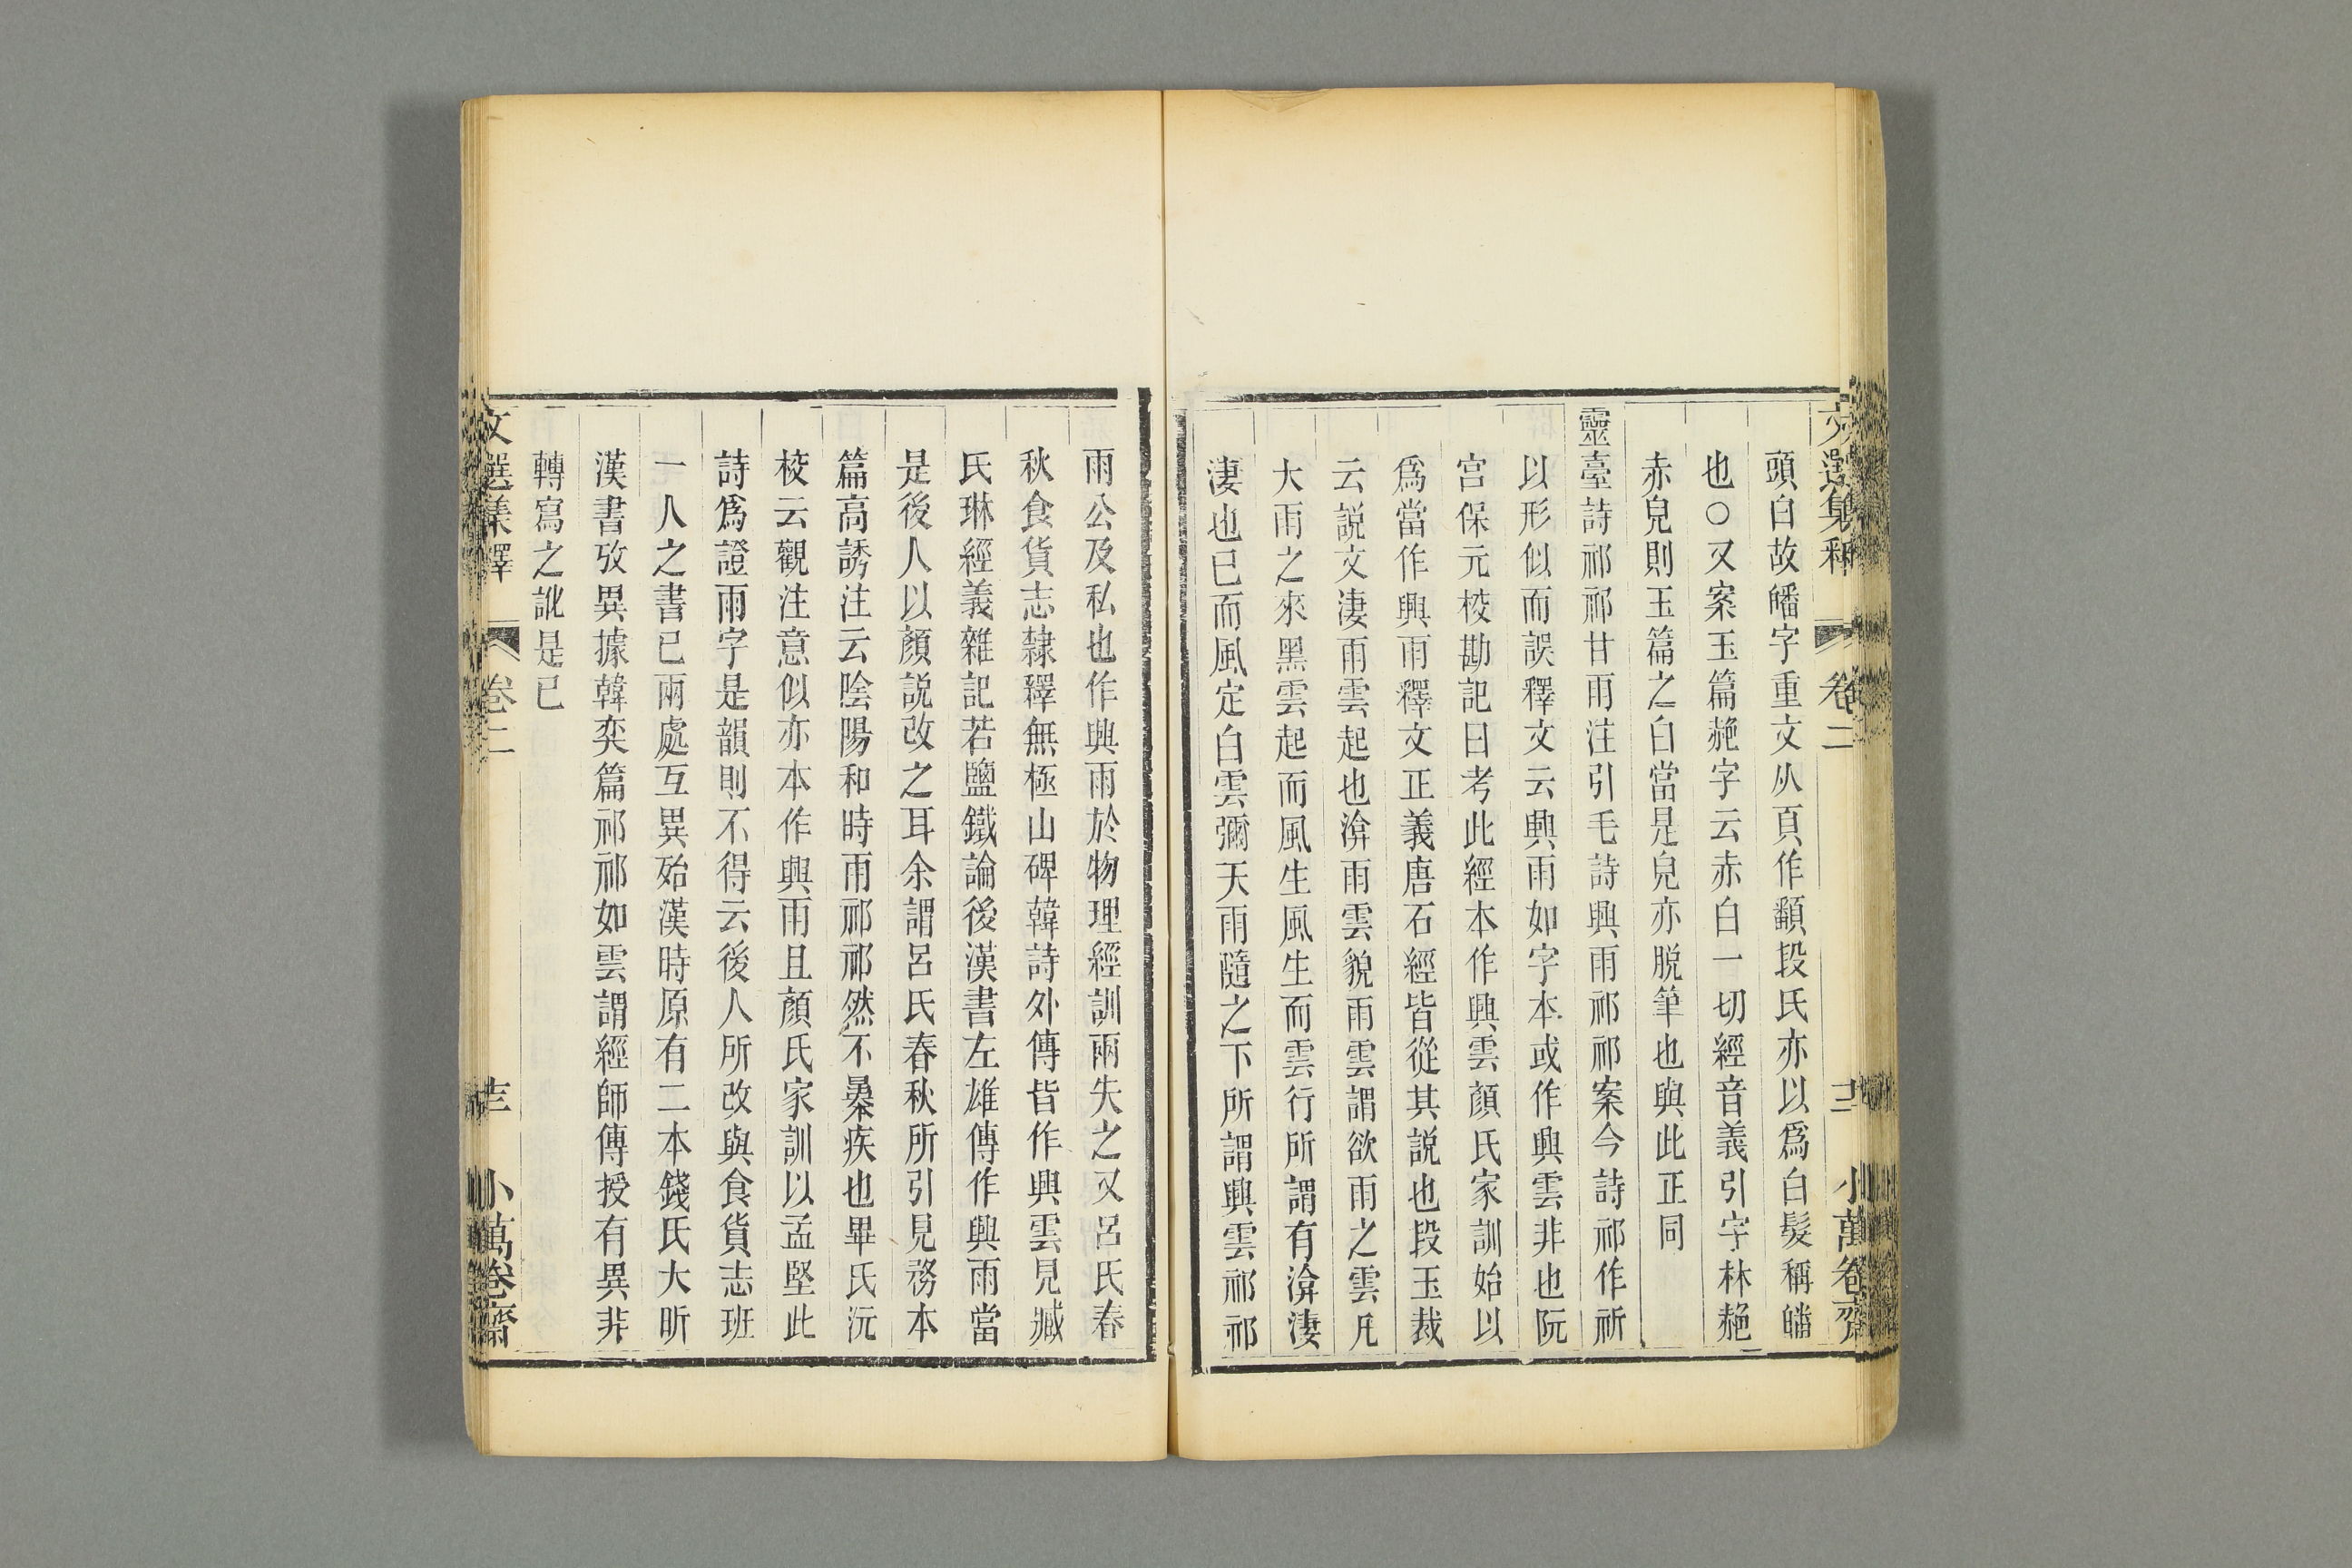 文選集釋 卷二 小萬卷齋
頭白故皤字重文从頁作䪤段氏亦以爲白髮稱皤
也○又案玉篇赩字云赤白一切經音義引字林赩
赤皃則玉篇之白當是皃亦脫筆也與此正同
靈臺詩祁祁甘雨注引毛詩興雨祁祁案今詩祁作祈
以形似而誤釋文云興雨如字本或作興雲非也阮
宮保元挍勘記曰考此經本作興雲顏氏家訓始以
爲當作興雨釋文正義唐石經皆從其説也段玉裁
云説文淒雨雲起也渰雨雲貌雨雲謂欲雨之雲凡
大雨之來黑雲起而風生風生而雲行所謂有渰淒
淒也已而風定白雲彌天雨隨之下所謂興雲祁祁
雨公及私也作興雨於物理經訓兩失之又呂氏春
秋食貨志隸釋無極山碑韓詩外傳皆作興雲見臧
氏琳經義雜記若鹽鐵論後漢書左雄傳作興雨當
是後人以顏説改之耳余謂呂氏春秋所引見務本
篇高誘注云陰陽和時雨祁祁然不暴疾也畢氏沅
挍云觀注意似亦本作興雨且顏氏家訓以孟堅此
詩爲證雨字是韻則不得云後人所改與食貨志班
一人之書已兩處互異殆漢時原有二本錢氏大昕
漢書攷異據韓奕篇祁祁如雲謂經師傳授有異非
轉寫之訛是已
文選集釋 卷二 小萬卷齋